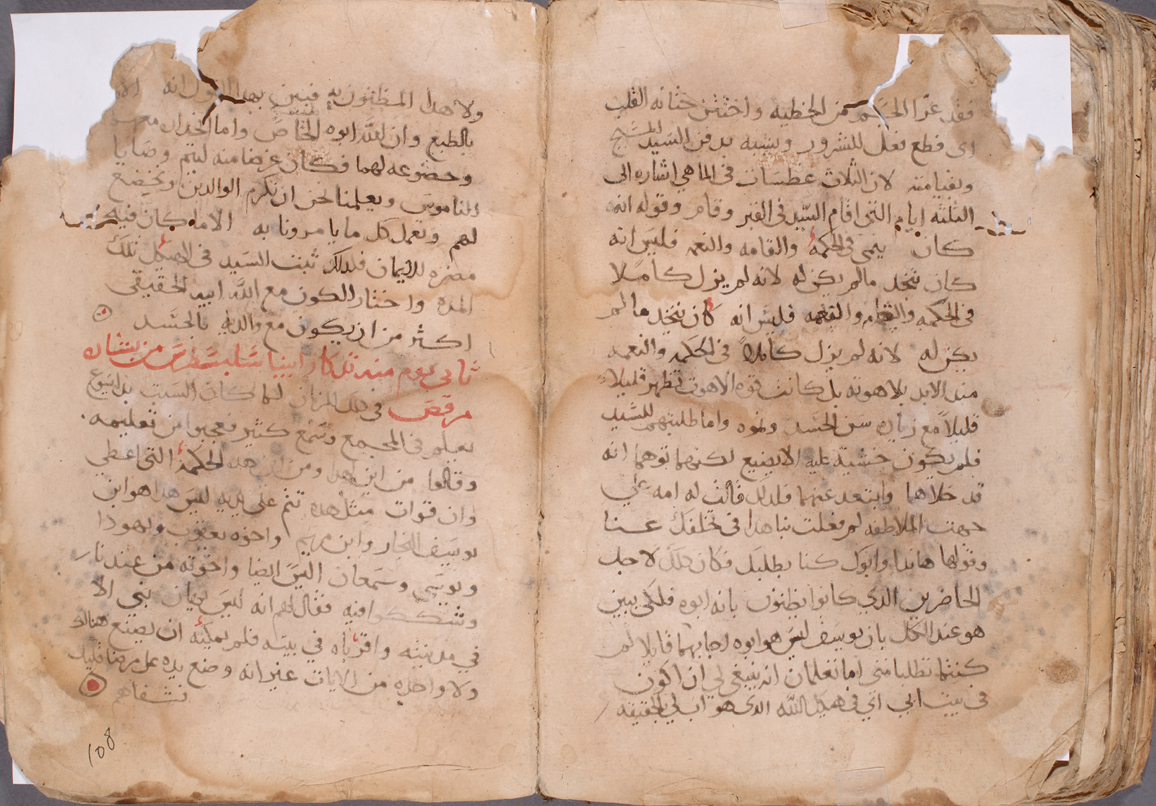 فقد عرّا الجسم من الخطيه واختتن ختانه القلب
اى قطع فعل للشرور وتشبه بدفن السيد المسيح
وبقيامته لان الثلاث غطسات فى الما هى اشاره الى
الثلثه ايام التى اقام السيّد فى القبر وقام وقوله انه
كان ينمى فى الحكمة والقامه والنعمه فليس انه
كان يتخد مالم يكن له لانه لم يزل كاملا
فى الحكمه والقامه والنعمه فليس انه كان يتخد مالم
يكن له لانه لم يزل كاملاً فى الحكمه والنعمه
منذ الابد بلاهوته بل كانت قوة الاهوت تظهر قليلاً
قليلاً مع زيادة سن الجسد ونموه واما طلبتهم للسيد
فلم يكون خشية عليه الا يضيع لكنهما توهما انه
قد خلاهما وابتعد عنهما فلدلك قالت له امه على
جهت الملاطفه لم فعلت بنا هدا فى تخلفك عنا
وقولها هانا وابوك كنا نطلبك فكان دلك لاجل
الحاضرين الدى كانوا يظنون بانه ابوه فلكى يبين
هو عند الكل بان يوسف ليس هو ابوه اجابهما قايلا لم
كنتما تطلبانى اما تعلمان انه ينبغى لى ان اكون
فى بيت ابى اى فى هيكل اللّه الدى هو ابى بالحقيقه
ولا هدا المظنون به فبين بهدا القول انه
بالطبع وان اللّه ابوه الخاص واما انحداره معهما
وخضوعه لهما فكان غرضا منه ليتم وصايا
الناموس ويعلمنا نحن ان نكرم الوالدين ونخضع
لهم ونعمل كل ما يامرونا به الامه كان فيه
مضره للايمان فلدلك ثبت السيد فى الهيكل تلك
المده واختار الكون مع اللّه ابيه الحقيقى
اكثر من ان يكون مع والدته بالجسد
ثانى يوم منه تدكار ابينا سلبسترس من بشاره
مرقص فى دلك الزمان لما كان السبت بدا يسوع
يعلم فى المجمع وسمع كثير فعجبوا من تعليمه
وقالوا من اين لهدا ومن اين هده الحكمة التى اعطى
وان قوات مثل هده تتم على يديه اليس هدا هو ابن
يوسف النجار وابن مريم واخوه يعقوب ويهودا
ويوسى وسمعان اليس ايضا واخوته من عندنا
وشككوا فيه فقال لهم انه ليس يهان نبى الا
فى مدينته واقرباه فى بيته فلم يمكنه ان يصنع هناك
ولا واحده من الايات غير انه وضع يده على مرضا قليل
فشفاهم
108